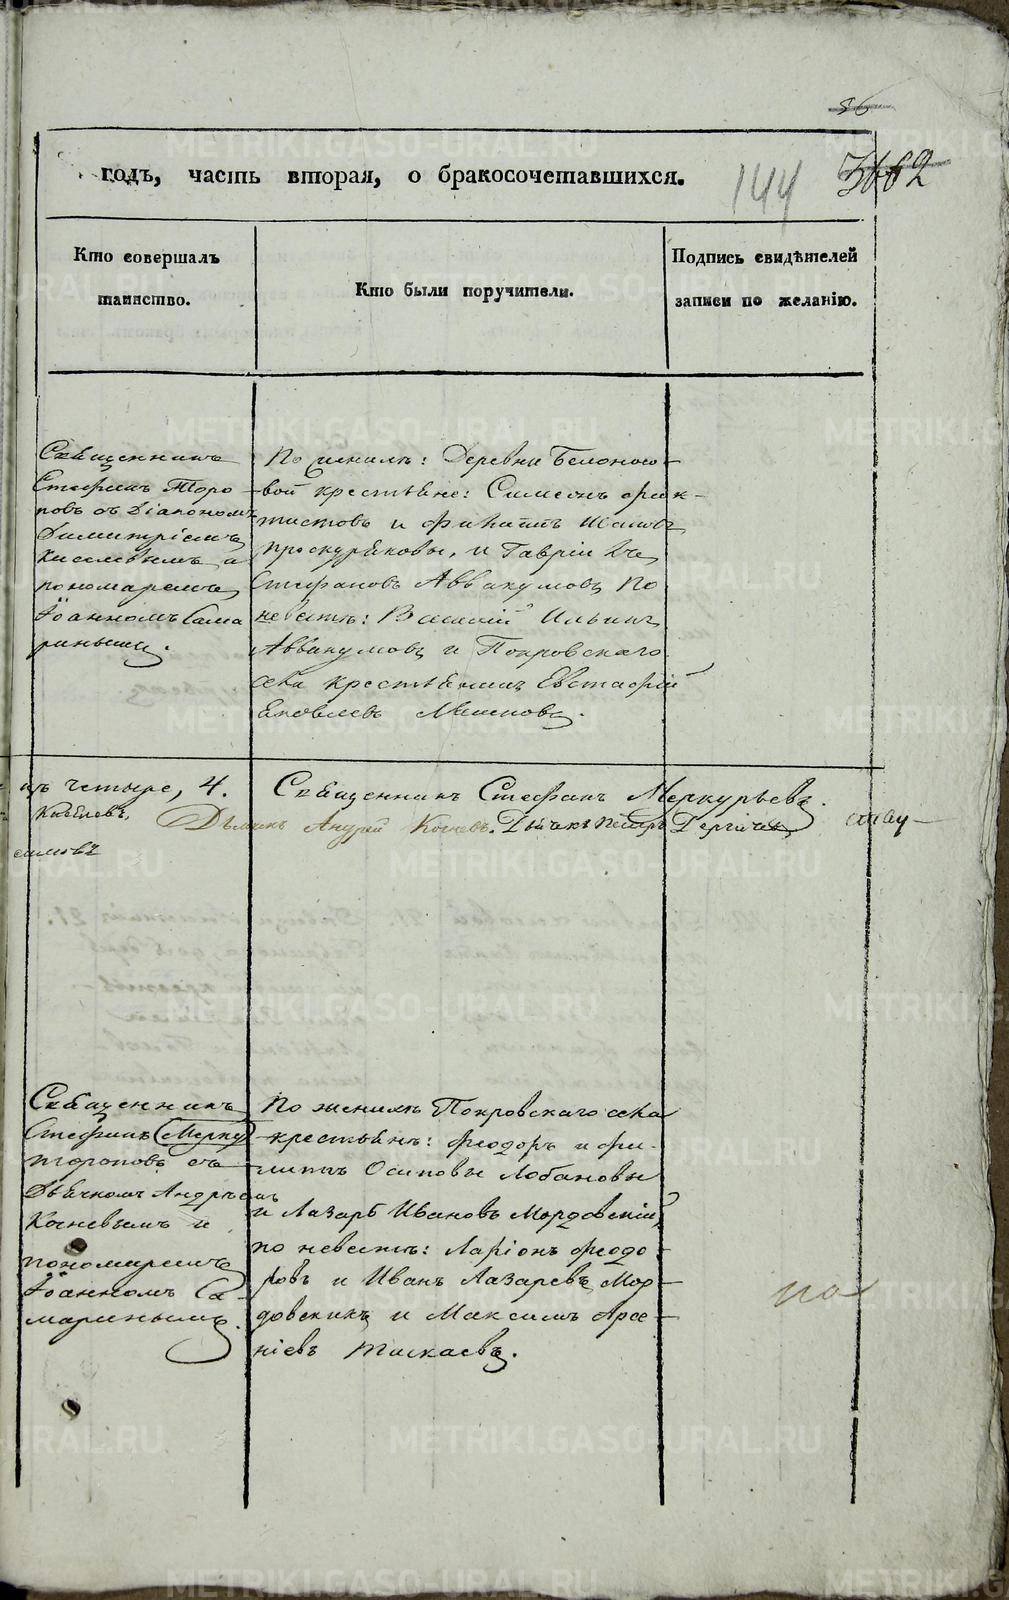 годъ, часть вторая, о бракосочетавшихся.
144
Кто совершалъ
таинство.
Кто были поручители.
Подпись свидѣтелей
записи по желанію.
Священникъ
Стефанъ Торо-
повъ съ Діакономъ
Димитріемъ
Киселевымъ и
пономаремъ
Іоанномъ Сама
ринымъ.
По женихѣ: Деревни Белоносо-
вой крестьяне: Симеонъ Фиок-
тистовъ и
Проскуряковы, и Гавріилъ
Стефановъ Аввакумовъ По
невестѣ: Василій Ильинъ
Аввакумовъ и Покровскаго
села крестьянинъ Евстафій
Яковлевъ
четыре, 4.
Священникъ Стефанъ Меркурьевъ.
Дьячекъ Андрей Коневъ. Дьячекъ Петръ
Священникъ
Стефанъ (Мерку)
Тороповъ съ
Дьячкомъ Андреемъ
Коневымъ и
пономаремъ
Іоанномъ Са-
маринымъ.
По женихѣ Покровскаго села
крестьянъ: Феодоръ и Фи-
липпъ Осиповы Лобановы
и Лазарь Ивановъ Мордовскій,
по невестѣ: Ларіонъ Феодо-
ровъ и Иванъ Лазаревъ Мор-
довскихъ и Максимъ Арсе-
ніевъ Тискаевъ.
METRIKI.GASO-URAL.RU